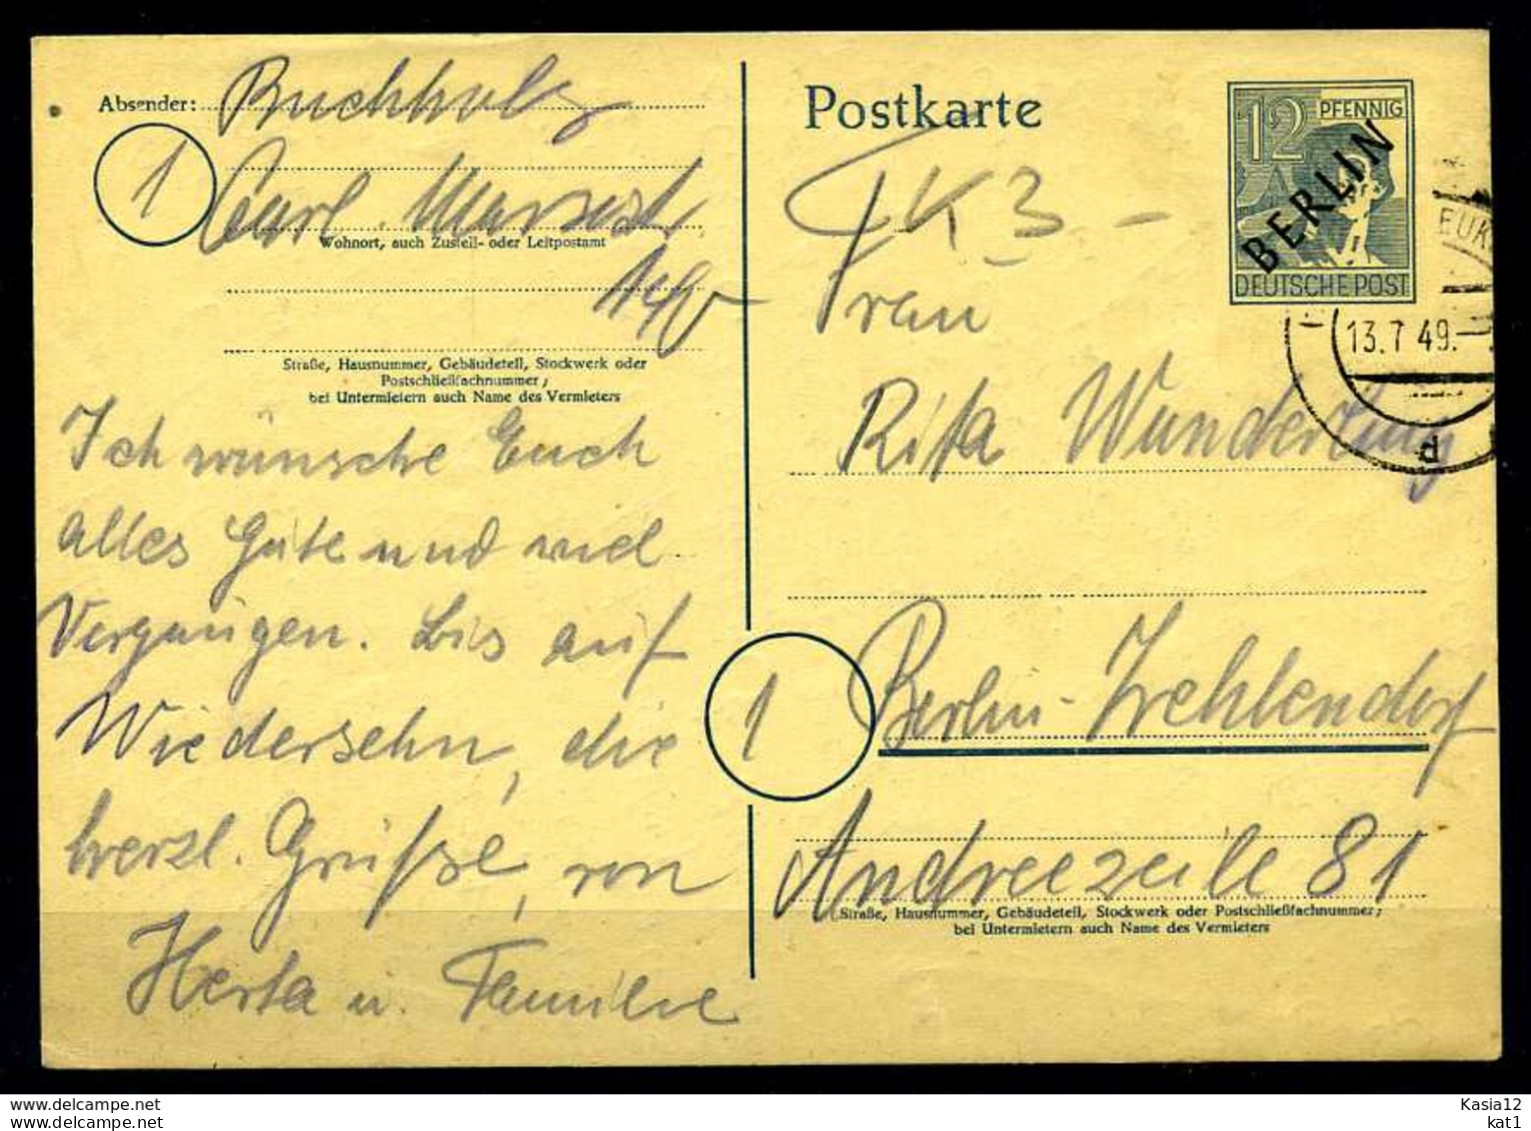 Absender: Buchholz
1
Carl Marxstr.
Wohnort, auch Zustell- oder Leitpostamt
Straße, Hausnummer, Gebäudeteil, Stockwerk oder
Postschließfachnummer;
bei Untermietern auch Name des Vermieters
Ich wünsche Euch
alles Gute und viel
Vergnügen. bis auf
Wiedersehn, die
herzl. Grüße, von
Herta u. Familie
Postkarte
12 PFENNIG
BERLIN
DEUTSCHE POST
13.7.49.-
K 3 -
Frau
Rita Wunderling
1
Berlin-Zehlendorf
Andreezeile 81
Straße, Hausnummer, Gebäudeteil, Stockwerk oder Postschließfachnummer;
bei Untermietern auch Name des Vermieters
Kasia12
kat1